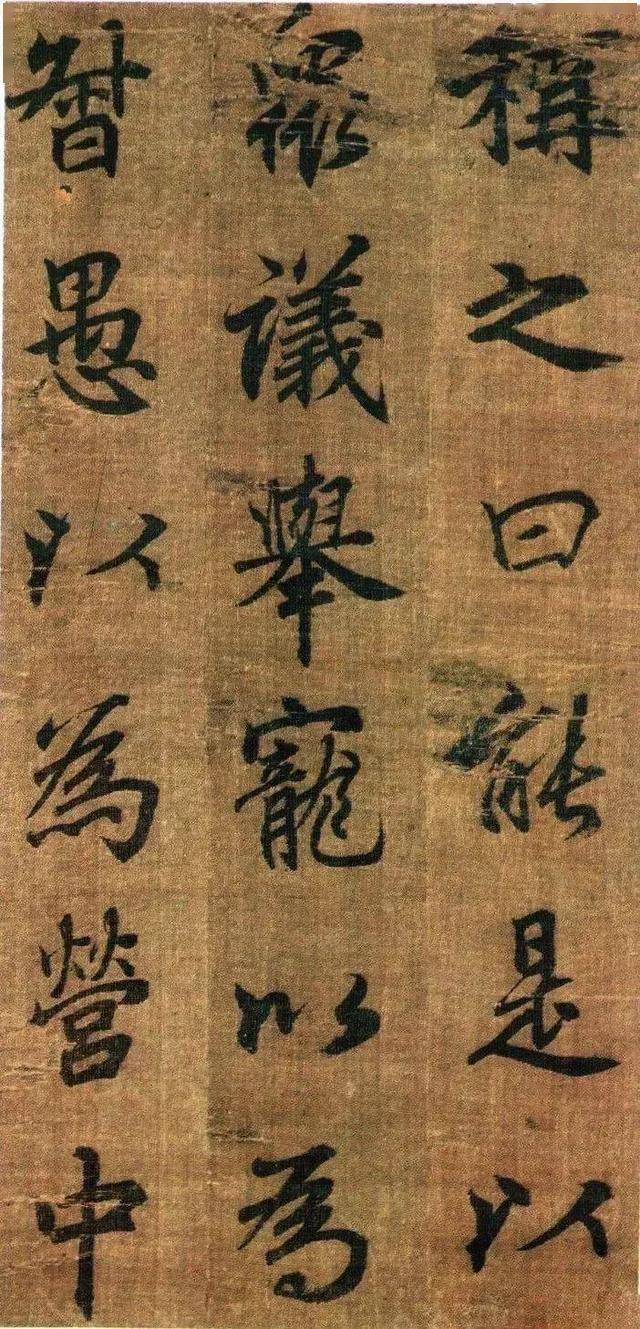 稱之曰能是以
眾議舉寵以為
智愚以為營中